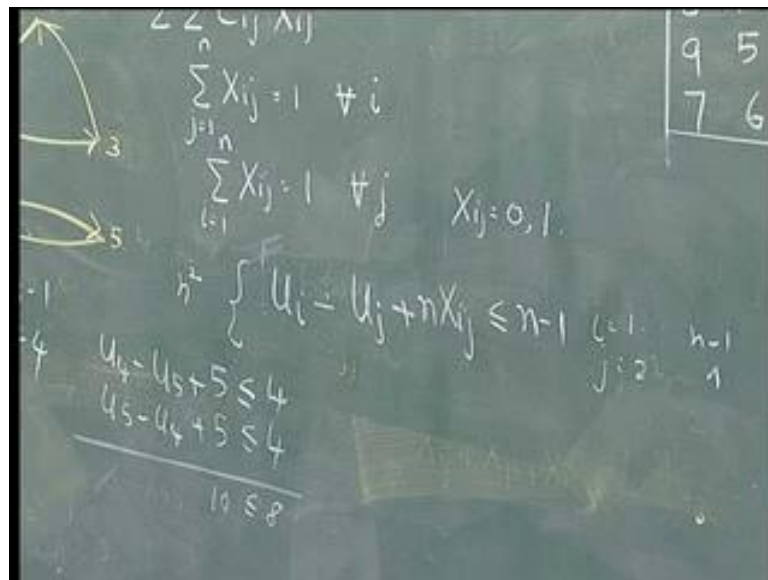 Σ Σ Cij Xij
n
Σ Xij = 1 ∀ i
j=1
n
Σ Xij = 1 ∀ j Xij = 0, 1.
i=1
n² { Ui - Uj + nXij ≤ n-1 i=1 n-1
j=2 n
U4 - U5 + 5 ≤ 4
U5 - U4 + 5 ≤ 4
10 ≤ 8
3
5
-1
-4
9 5
7 6